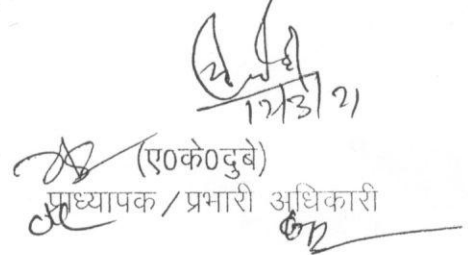 12/3/21
(ए०के०दुबे)
प्राध्यापक / प्रभारी अधिकारी